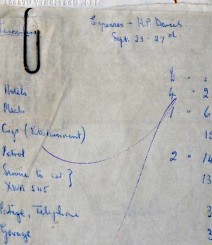 Expenses - H.P. Davies
Sept. 23 - 27th
8
Hotels 4 2
Meals 1 6
Cigs (Entertainment) 15
Petrol 2 14
Service to car }
XWR 545 } 13
Postage, Telephone 3
Garage 3